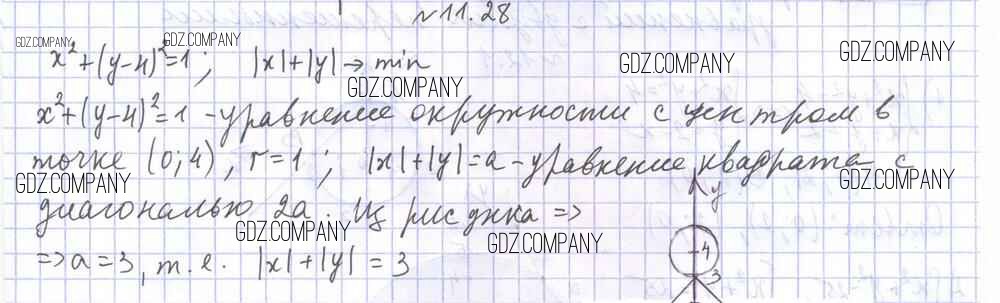 №11.28
x²+(y-4)²=1; |x|+|y|→min
x²+(y-4)²=1 - уравнение окружности с центром в
точке (0;4), r=1; |x|+|y|=a - уравнение квадрата с
диагональю 2a. Из рисунка =>
=> a=3, т.е. |x|+|y|=3
y
4
3
GDZ.COMPANY
GDZ.COMPANY
GDZ.COMPANY
GDZ.COMPANY
GDZ.COMPANY
GDZ.COMPANY
GDZ.COMPANY
GDZ.COMPANY
GDZ.COMPANY